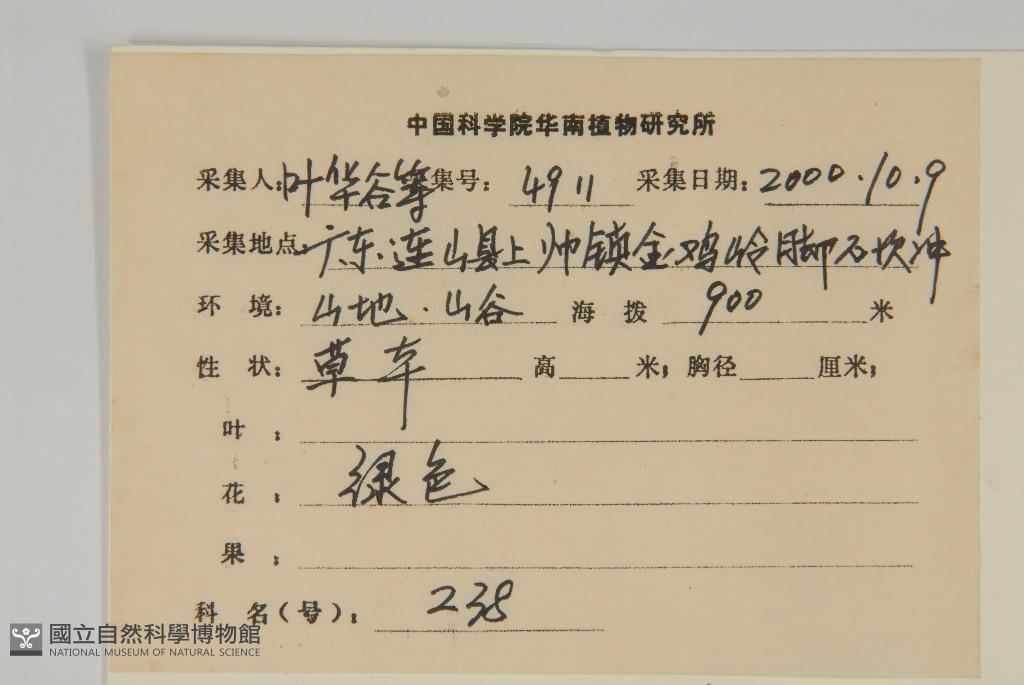 中国科学院华南植物研究所
采集人:叶华谷等 集号: 4911 采集日期: 2000.10.9
采集地点:广东连山县上帅镇金鸡岭脚石坎冲
环 境: 山地.山谷 海 拨 900 米
性 状: 草本 高 米; 胸径 厘米;
叶 :
花 : 绿色
果 :
科 名(号): 238
國立自然科學博物館
NATIONAL MUSEUM OF NATURAL SCIENCE